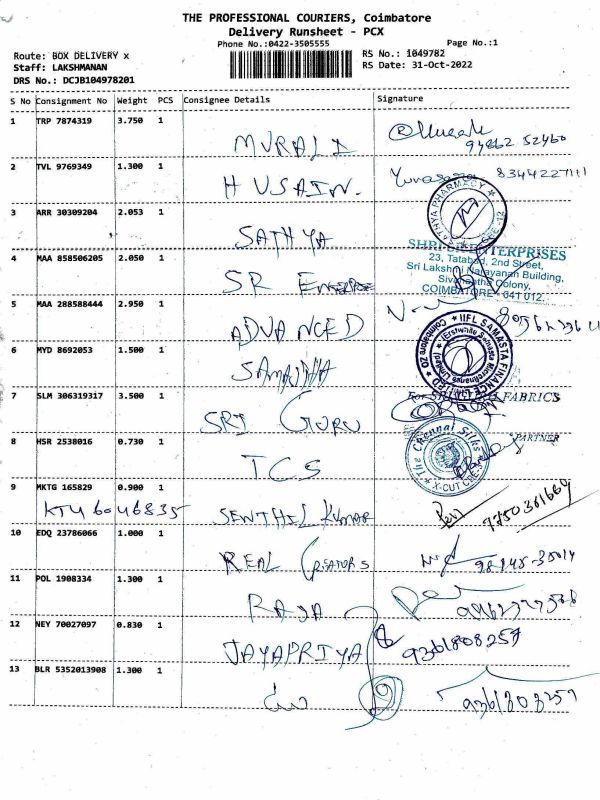 THE PROFESSIONAL COURIERS, Coimbatore
Delivery Runsheet - PCX
Phone No.:0422-3505555
Page No.:1
Route: BOX DELIVERY x
RS No.: 1049782
Staff: LAKSHMANAN
RS Date: 31-Oct-2022
DRS No.: DCJB104978201
S No Consignment No Weight PCS Consignee Details Signature
1 TRP 7874319 3.750 1
MURALI
94862 52460
2 TVL 9769349 1.300 1
HUSAIN. 8344227111
3 ARR 30309204 2.053 1
SATHYA
SATHYA PHARMACY
4 MAA 858506205 2.050 1
SR ENTERPRISE
SHRI ENTERPRISES
23, Tatabad, 2nd Street,
Sri Lakshmi Narayanan Building,
Colony,
COIMBATORE - 641 012.
5 MAA 288588444 2.950 1
ADVANCED
6 MYD 8692053 1.500 1
SAMASTHA
IIFL SAMASTA FINANCE LIMITED
(Erstwhile Samasta Microfinance Limited)
Coimbatore 20
7 SLM 306319317 3.500 1
SRI GURU
For SRI FABRICS
PARTNER
8 HSR 2538016 0.730 1
TCS
The Chennai Silks
X-CUT
9 MKTG 165829 0.900 1
KTU 6046835 SENTHIL KUMAR
7750361660
10 EDQ 23786066 1.000 1
REAL CREATORS
11 POL 1908334 1.300 1
RAJA
12 NEY 70027097 0.830 1
JAYAPRIYA 9361808257
13 BLR 5352013908 1.300 1
9361808257